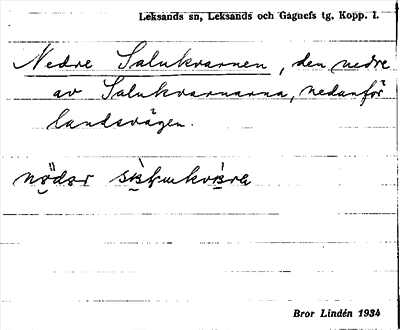 Leksands sn, Leksands och Gagnefs tg, Kopp. l.
Nedre Salukvarnen, den nedre
av Salukvarnarna, nedanför
landsvägen.
Bror Lindén 1934